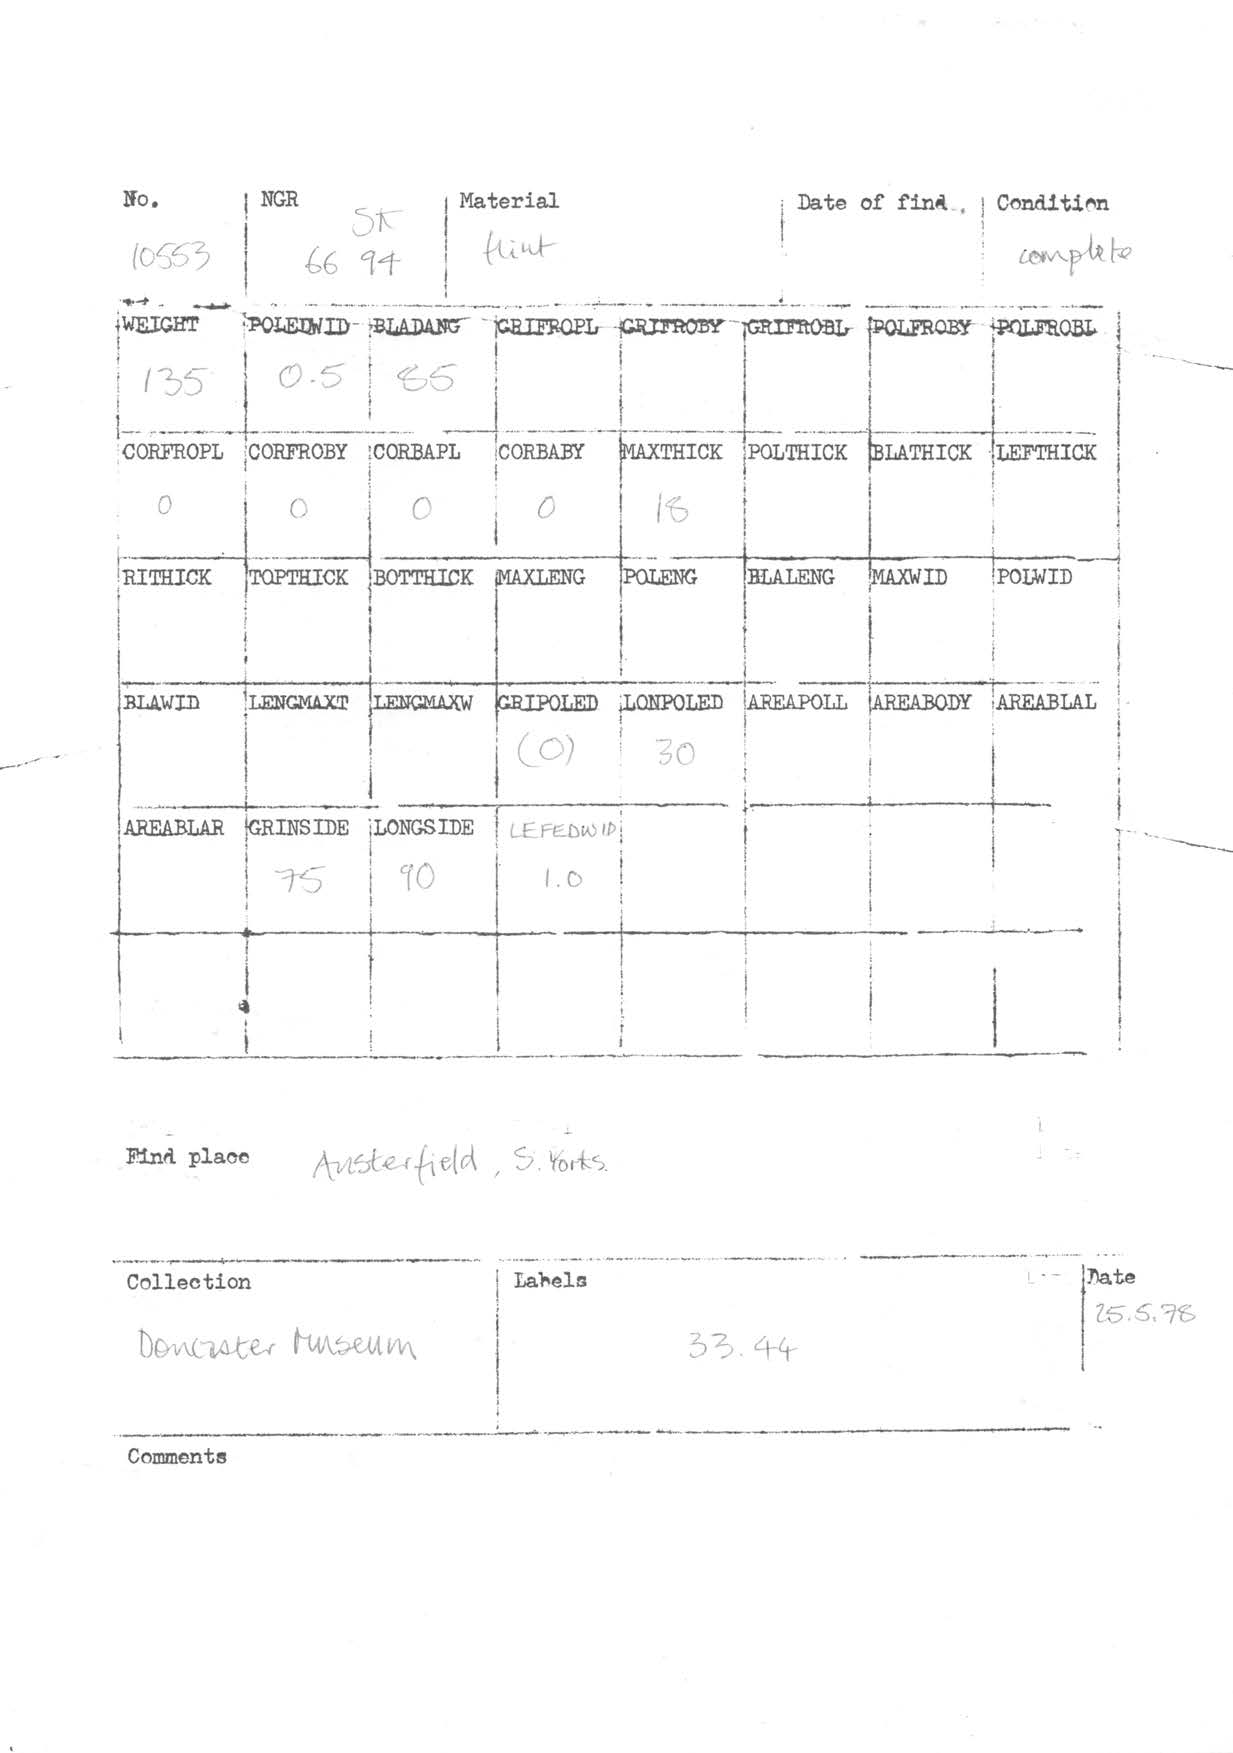 No. NGR Material Date of find. Condition
SK
10553 66 94 flint complete
WEIGHT POLEDWID BLADANG GRIFROPL GRIFROBY GRIFROBL POLFROBY POLFROBL
135 0.5 85
CORFROPL CORFROBY CORBAPL CORBABY MAXTHICK POLTHICK BLATHICK LEFTHICK
0 0 0 0 18
RITHICK TOPTHICK BOTTHICK MAXLENG POLENG BLALENG MAXWID POLWID
BLAWID LENGMAXT LENGMAXW GRIPOLED LONPOLED AREAPOLL AREABODY AREABLAL
(0) 30
AREABLAR GRINSIDE LONGSIDE LEFEDWID
75 90 1.0
Find place Austerfield, S. Yorks.
Collection Labels Date
25.5.78
Doncaster Museum 33.44
Comments